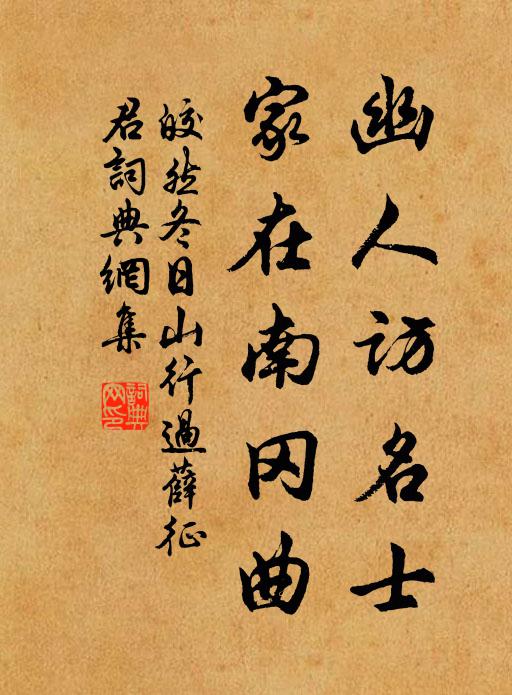 幽人访名士
家在南冈曲
皎然冬日山行過薛征
君詞典網集
詞典網印